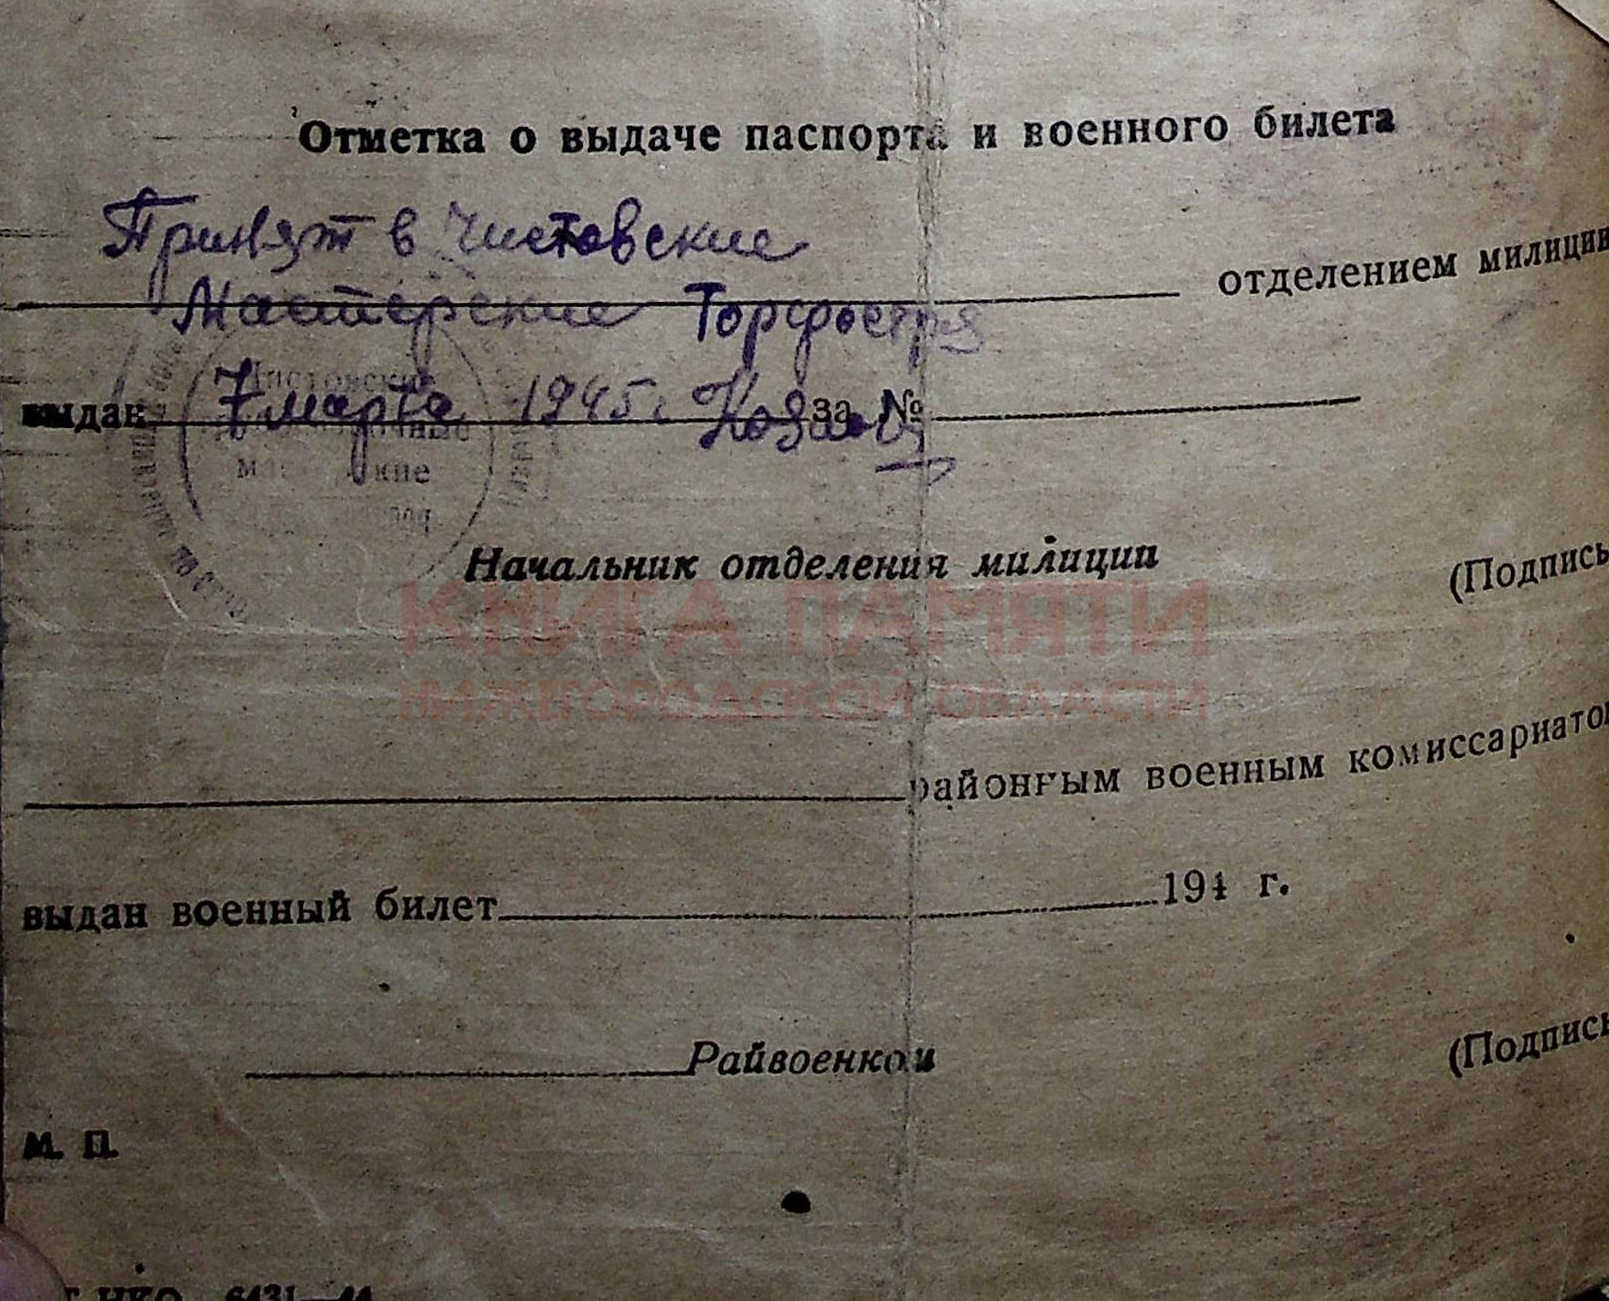 Отметка о выдаче паспорта и военного билета
Принят в Чистовские
отделением милиции
Мастерские Торфостря
выдан 7 марта 1945 г за №
Чистовские
Начальник отделения милиции (Подпись
КНИГА ПАМЯТИ
НИЖЕГОРОДСКОЙ ОБЛАСТИ
районным военным комиссариатом
выдан военный билет 194 г.
Райвоенком (Подпись
М. П.
НКО 6431—44